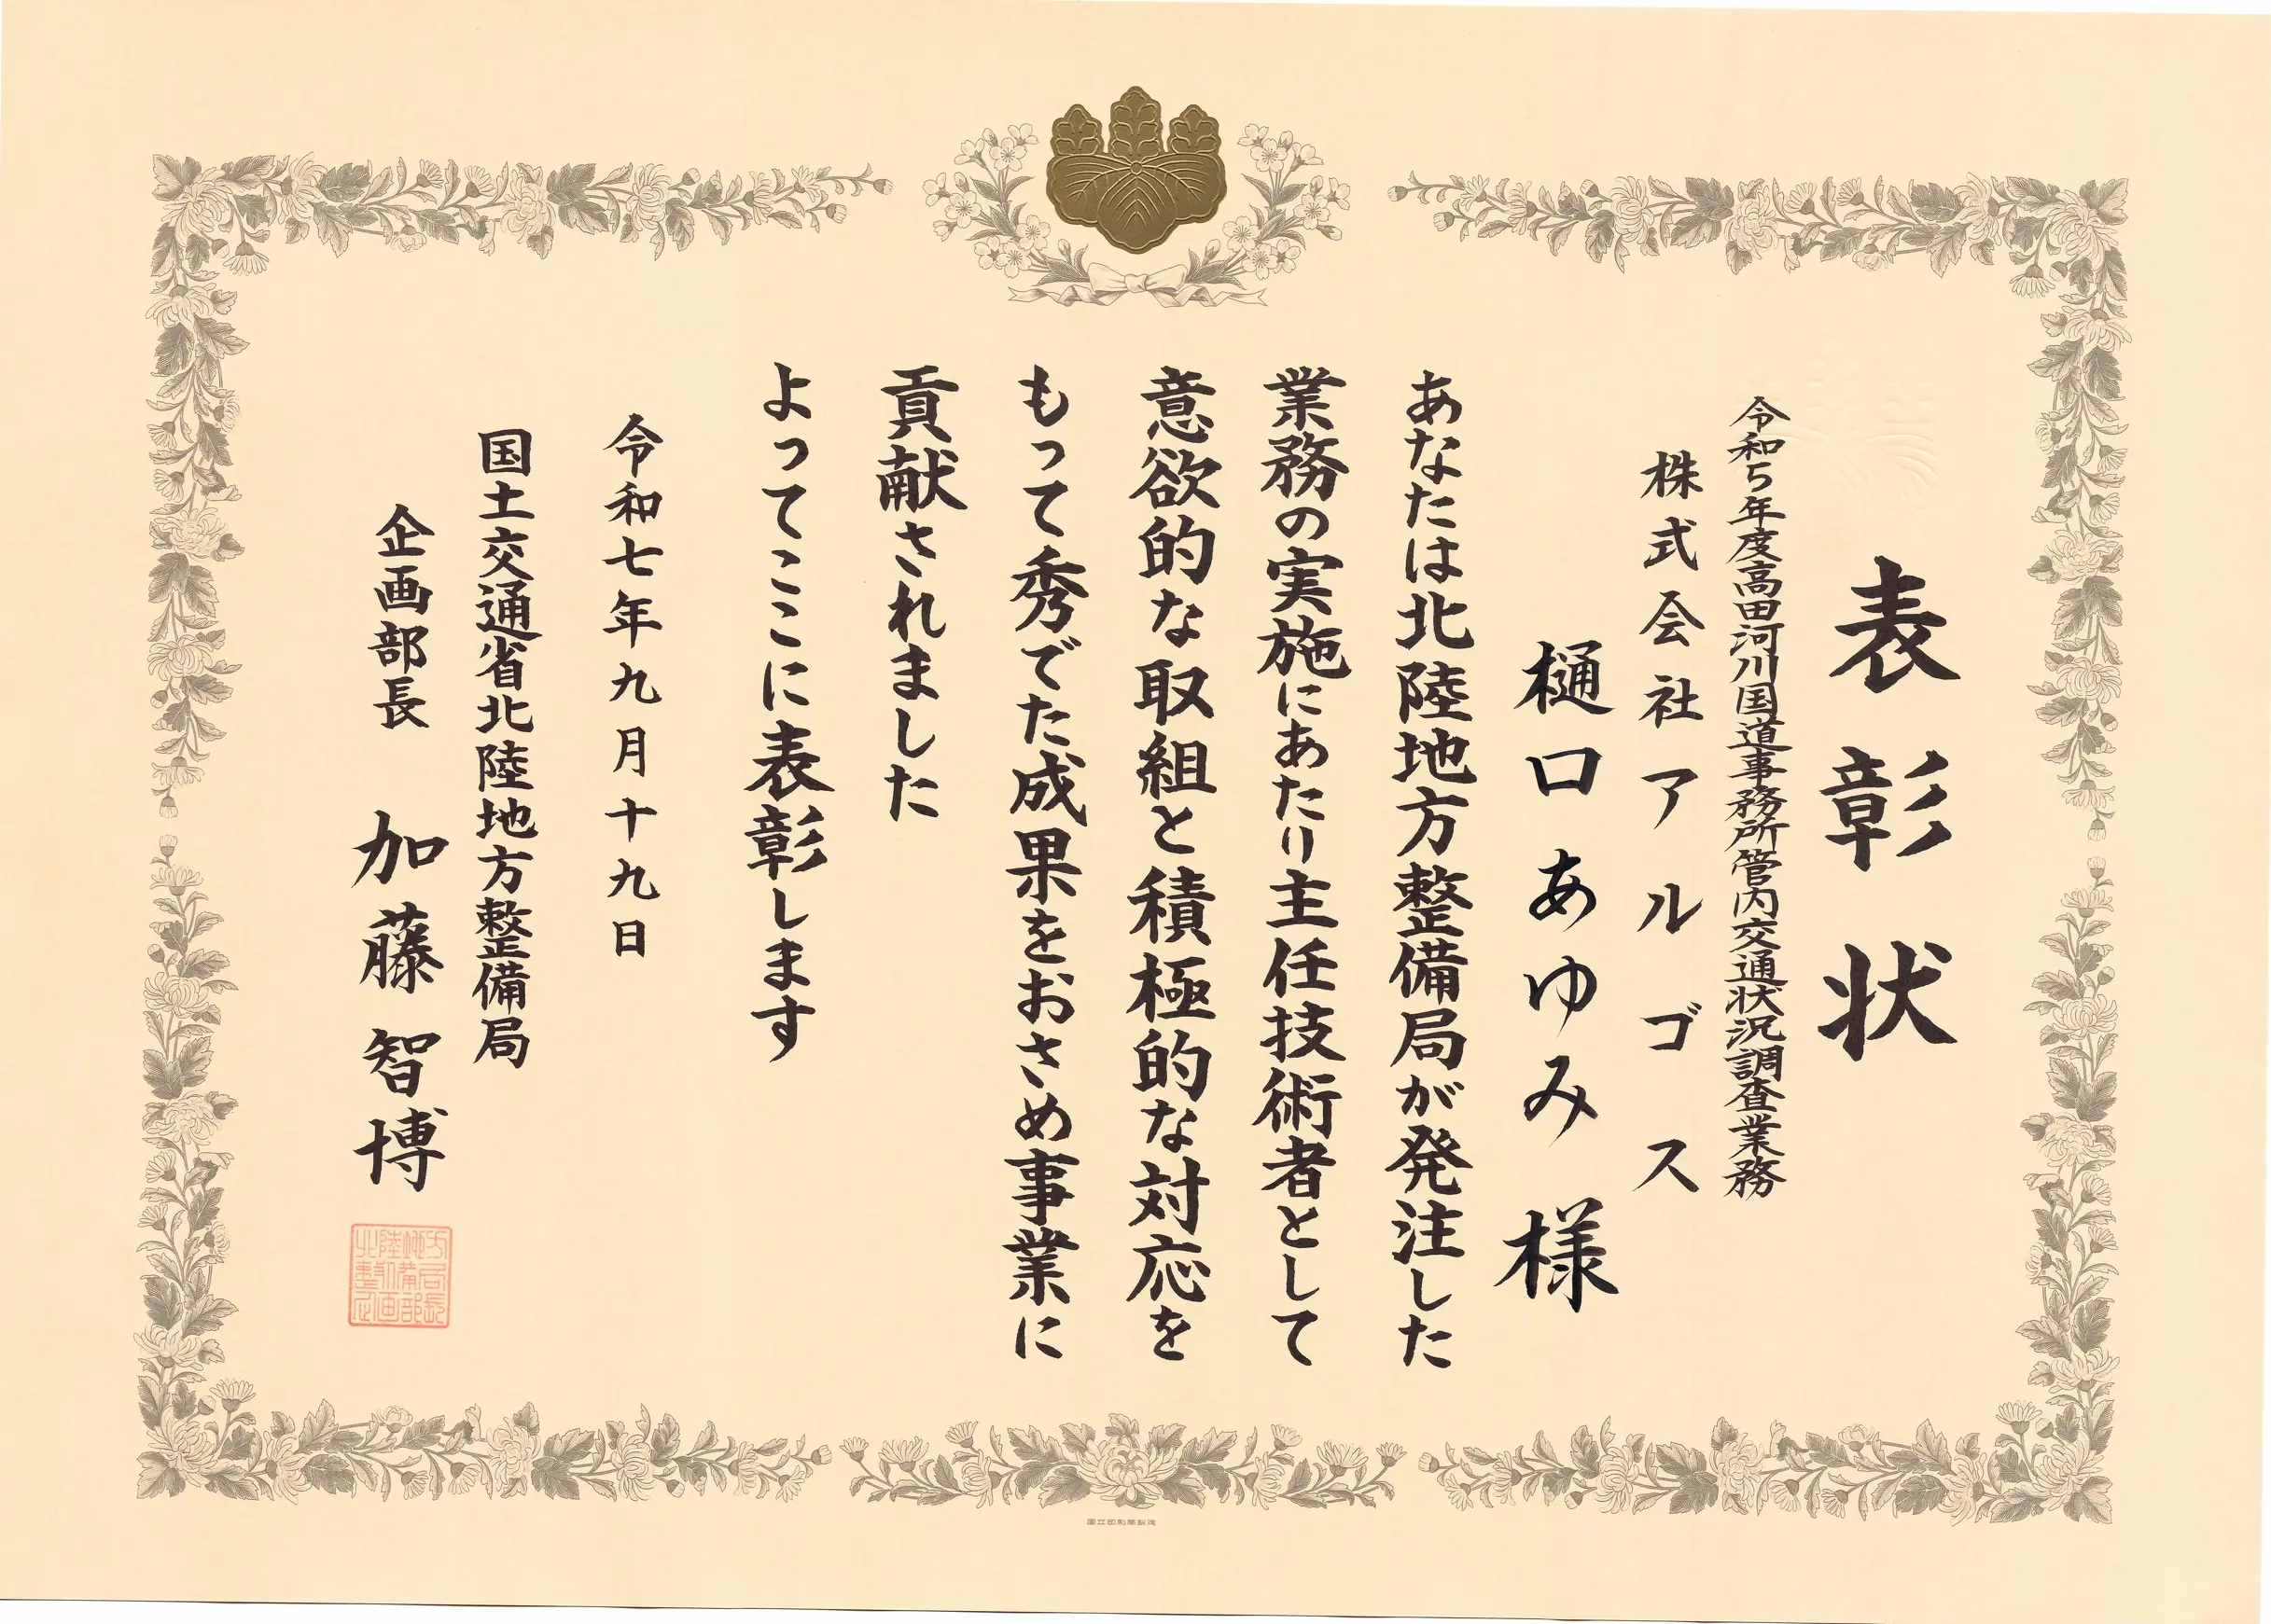 表彰状
令和5年度高田河川国道事務所管内交通状況調査業務
株式会社アルゴス
樋口あゆみ 様
あなたは北陸地方整備局が発注した
業務の実施にあたり主任技術者として
意欲的な取組と積極的な対応を
もって秀でた成果をおさめ事業に
貢献されました
よってここに表彰します
令和七年九月十九日
国土交通省北陸地方整備局
企画部長 加藤智博